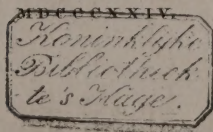 MDCCCXXIV.
Koninklijke
Bibliotheek
te's Hage.